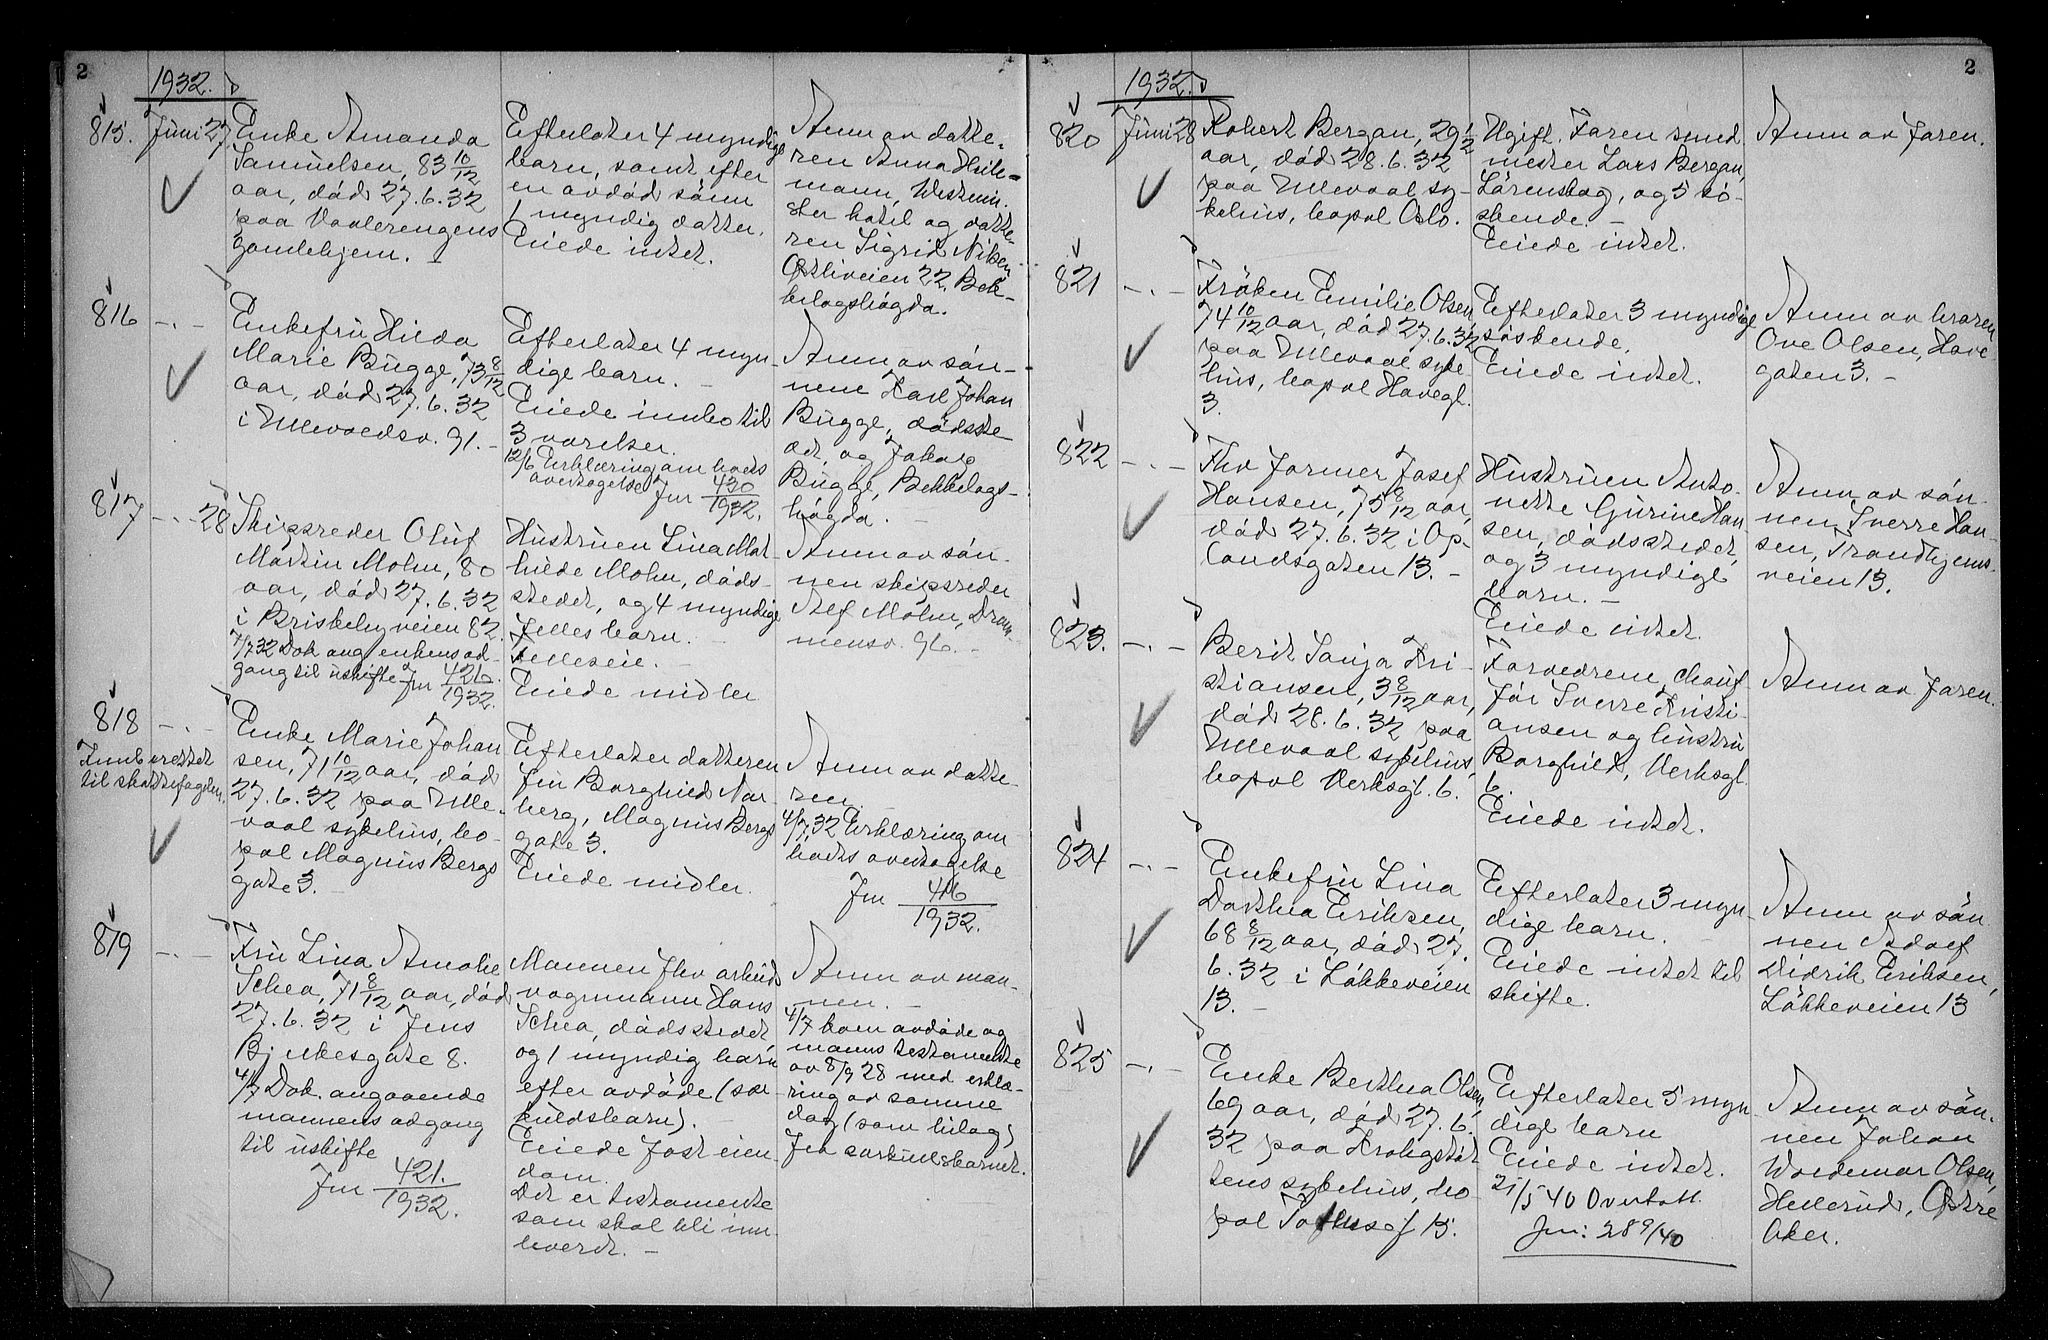 2
1932.
815.
Juni 27
Enke Amanda
Samuelsen, 83 10/12
aar, död 27.6.32
paa Vaalerengens
gamlehjem.
Efterlater 4 myndige
barn, samt efter
en avdöd sönn
1 myndig datter.
Eiede intet.
Anm av datte-
ren Anna Heile-
mann, Westmin-
ster hotel og datte-
ren Sigrid Nilsen
Östliveien 22, Bek-
kelagshögda.
816
-.-
Enkefru Hilda
Marie Bugge, 73 8/12
aar, död 27.6.32
i Ullevoldsv. 91.-
Efterlater 4 myn-
dige barn. -
Eiede innbo til
3 værelser.
12/6 Erklæring om boets
overtagelse Jnr 430/1932.
Anm av sön-
nene Karl Johan
Bugge, dödsste-
det, og Jakob
Bugge, Bekkelags-
högda. -
817
-.- 28
Skipsreder Oluf
Martin Mohn, 80
aar, död 27.6.32
i Briskebyveien 82.
7/7 32 Dok ang enkens ad-
gang til uskifte Jnr 426/1932.
Hustruen Lina Mat-
hilde Mohn, döds-
stedet, og 4 myndige
felles barn. -
Felleseie. -
Eiede midler
Anm av sön-
nen skipsreder
Alf Mohn, Dram-
mensv. 96. -
818
-.-
til skattefogden.
Enke Marie Johan
sen, 71 10/12 aar, död
27.6.32 paa Ulle-
vaal sykehus, bo-
pæl Magnus Bergs
gate 3. -
Efterlater datteren
frü Borghild Nor-
berg, Magnus Bergs
gate 3.
Eiede midler.
Anm av datte-
ren.
4/7 32 Erklæring om
boets overtagelse
Jnr 416/1932.
819
-.-
Frü Lina Amalie
Schea, 71 8/12 aar, död
27.6.32 i Jens
Bjelkesgate 8.
4/7 Dok. angaaende
mannens adgang
til uskifte
Jnr 421./1932.
Mannen fhv arbeids
vognmann Hans
Schea, dödsstedet,
og 1 myndig barn
efter avdöde (sær
kuldsbarn). -
Eiede fast eien
dom.
Det er testamente
som skal bli inn
levert. -
Anm av man-
nen. -
4/7 kom avdöde og
manns testamente
av 8/9 28 med erklæ-
ring av samme
dag (som bilag)
fra særkullsbarnet.
2
1932.
820
Juni 28
Robert Bergan, 29 1/2
aar, död 28.6.32
paa Ullevaal sy-
kehus, bopæl Oslo.
Ugift. Faren smed
mester Lars Bergan,
Lörenskog, og 5 sö-
skende. -
Eiede intet.
Anm av faren.
821
-.-
Fröken Emilie Olsen
74 10/12 aar, död 27.6.32
paa Ullevaal syke
hus, bopæl Havegt.
3.
Efterlater 3 myndige
söskende.
Eiede intet.
Anm av broren
Ove Olsen, Have
gaten 3. -
822
-.-
Fhv former Josef
Hansen, 75 8/12 aar,
död 27.6.32 i Op-
landsgaten 13. -
Hustruen Anto-
nette Gurine Han-
sen, dödsstedet,
og 3 myndige
barn. -
Eiede intet.
Anm av sön-
nen Sverre Han-
sen, Trondhjems-
veien 13.
823.
-.-
Berit Sonja Kri-
stiansen, 3 8/12 aar,
död 28.6.32 paa
Ullevaal sykehus,
bopæl Verksgt. 6.
Forældrene, chauf
för Sverre Kristi-
ansen og hustru
Borghild, Verksgt.
6.
Eiede intet.
Anm av faren.
824
-.-
Enkefrü Lina
Dorthea Eriksen,
68 8/12 aar, död 27.
6.32 i Lökkeveien
13. -
Efterlater 3 myn-
dige barn. -
Eiede intet til
skifte.
Anm av sön
nen Adolf
Didrik Eriksen,
Lökkeveien 13
825
-.-
Enke Berthea Olsen,
69 aar, död 27.6.
32 paa Krohgstöt
tens sykehus, bo-
pæl
Efterlater 5 myn
dige barn
Eiede intet.
21/5 40 Overtatt
Jnr: 289/40
Anm av sön-
nen Johan
Woldemar Olsen,
Hellerud, Östre
Aker.